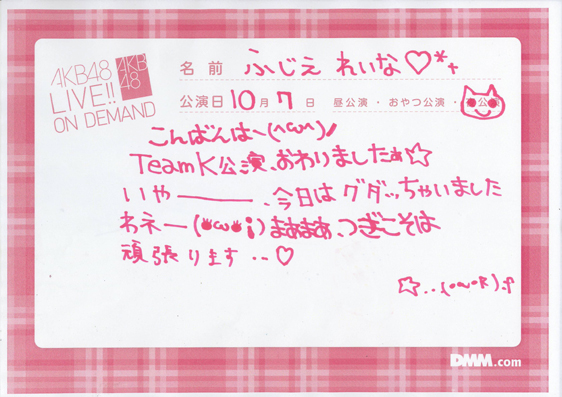 AKB48
LIVE!!
ON DEMAND
AKB
48
名前 ふじえ れいな♡*+
公演日 10月 7日 昼公演・おやつ公演・ 公演
こんばんは〜(^ω^)ノ
TeamK公演、おわりましたぁ☆
いやー――、今日はグダッちゃいました
わネー(●ω●;)まぁまぁ、つぎこそは
頑張ります..♡
DMM.com